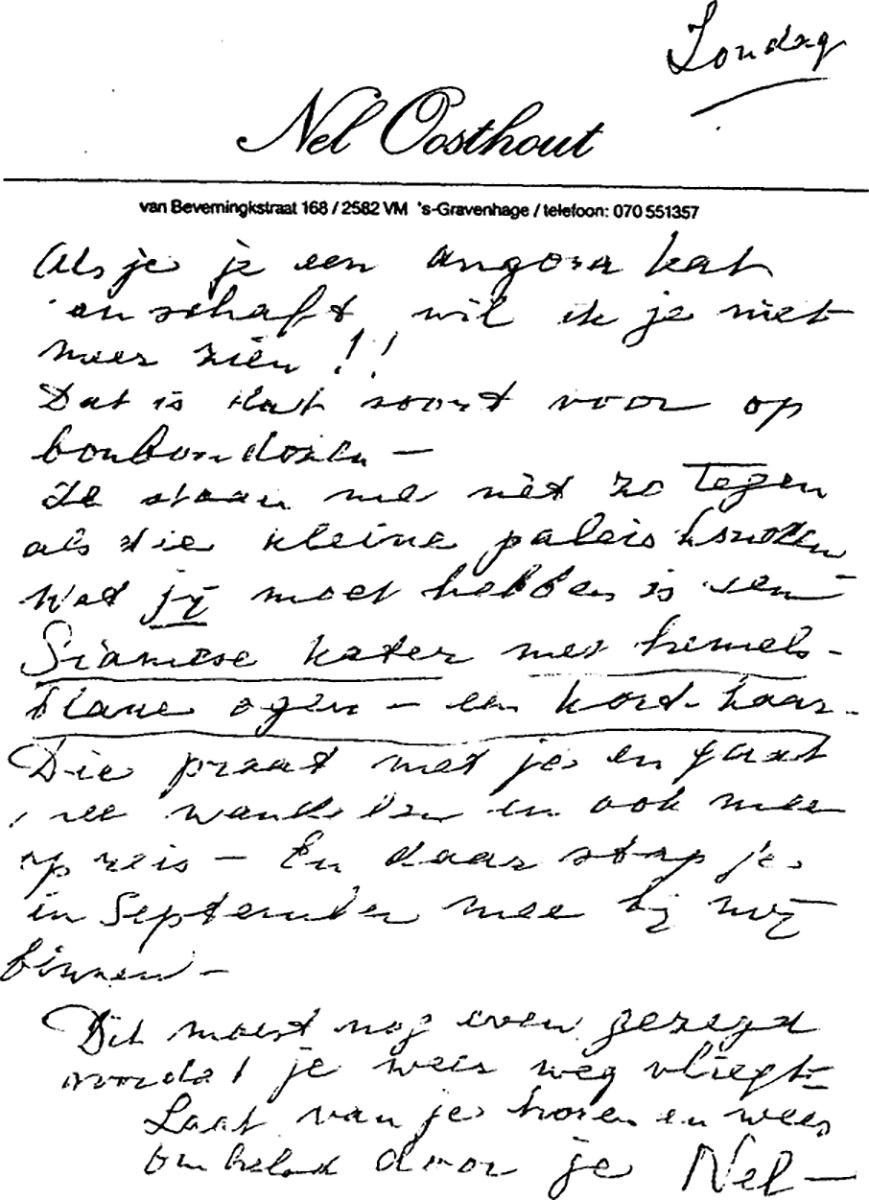 Zondag
Nel Oosthout
van Beverningkstraat 168 / 2582 VM 's-Gravenhage / telefoon: 070 551357
Als je je een angora kat
anschaft wil ik je niet
meer zien !!
Dat is dat soort voor op
bonbondozen —
Ze staan me net zo tegen
als die kleine paleis
Wat jij moet hebben is een
Siamese kater met hemels-
blauwe ogen — een kort-haar.
Die praat met je en gaat
mee wandelen en ook mee
op reis — En daar stap je
in September mee bij mij
binnen —
Dit moest nog even gezegd
voordat je weer weg vliegt —
Laat van je horen en wees
omhelsd door je Nel —